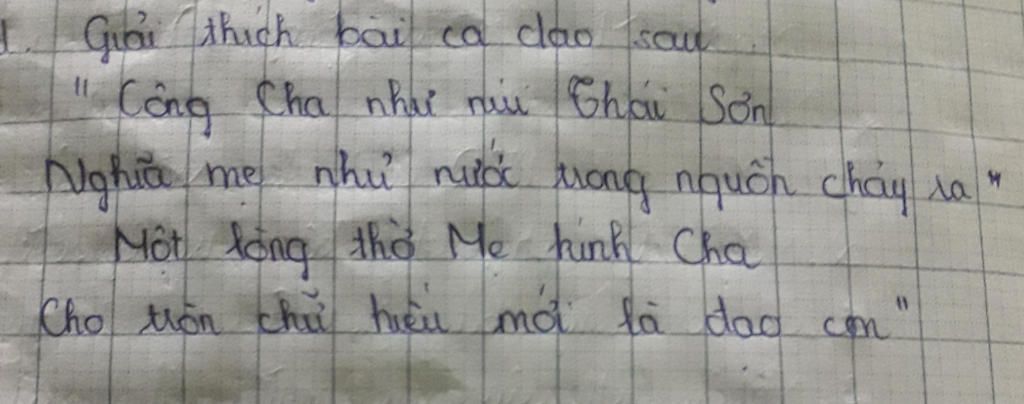 1. Giải thích bài ca dao sau
" Công Cha như núi Thái Sơn
Nghĩa mẹ như nước trong nguồn chảy ra "
Một lòng thờ Mẹ kính Cha
Cho tròn chữ hiếu mới là đạo con "